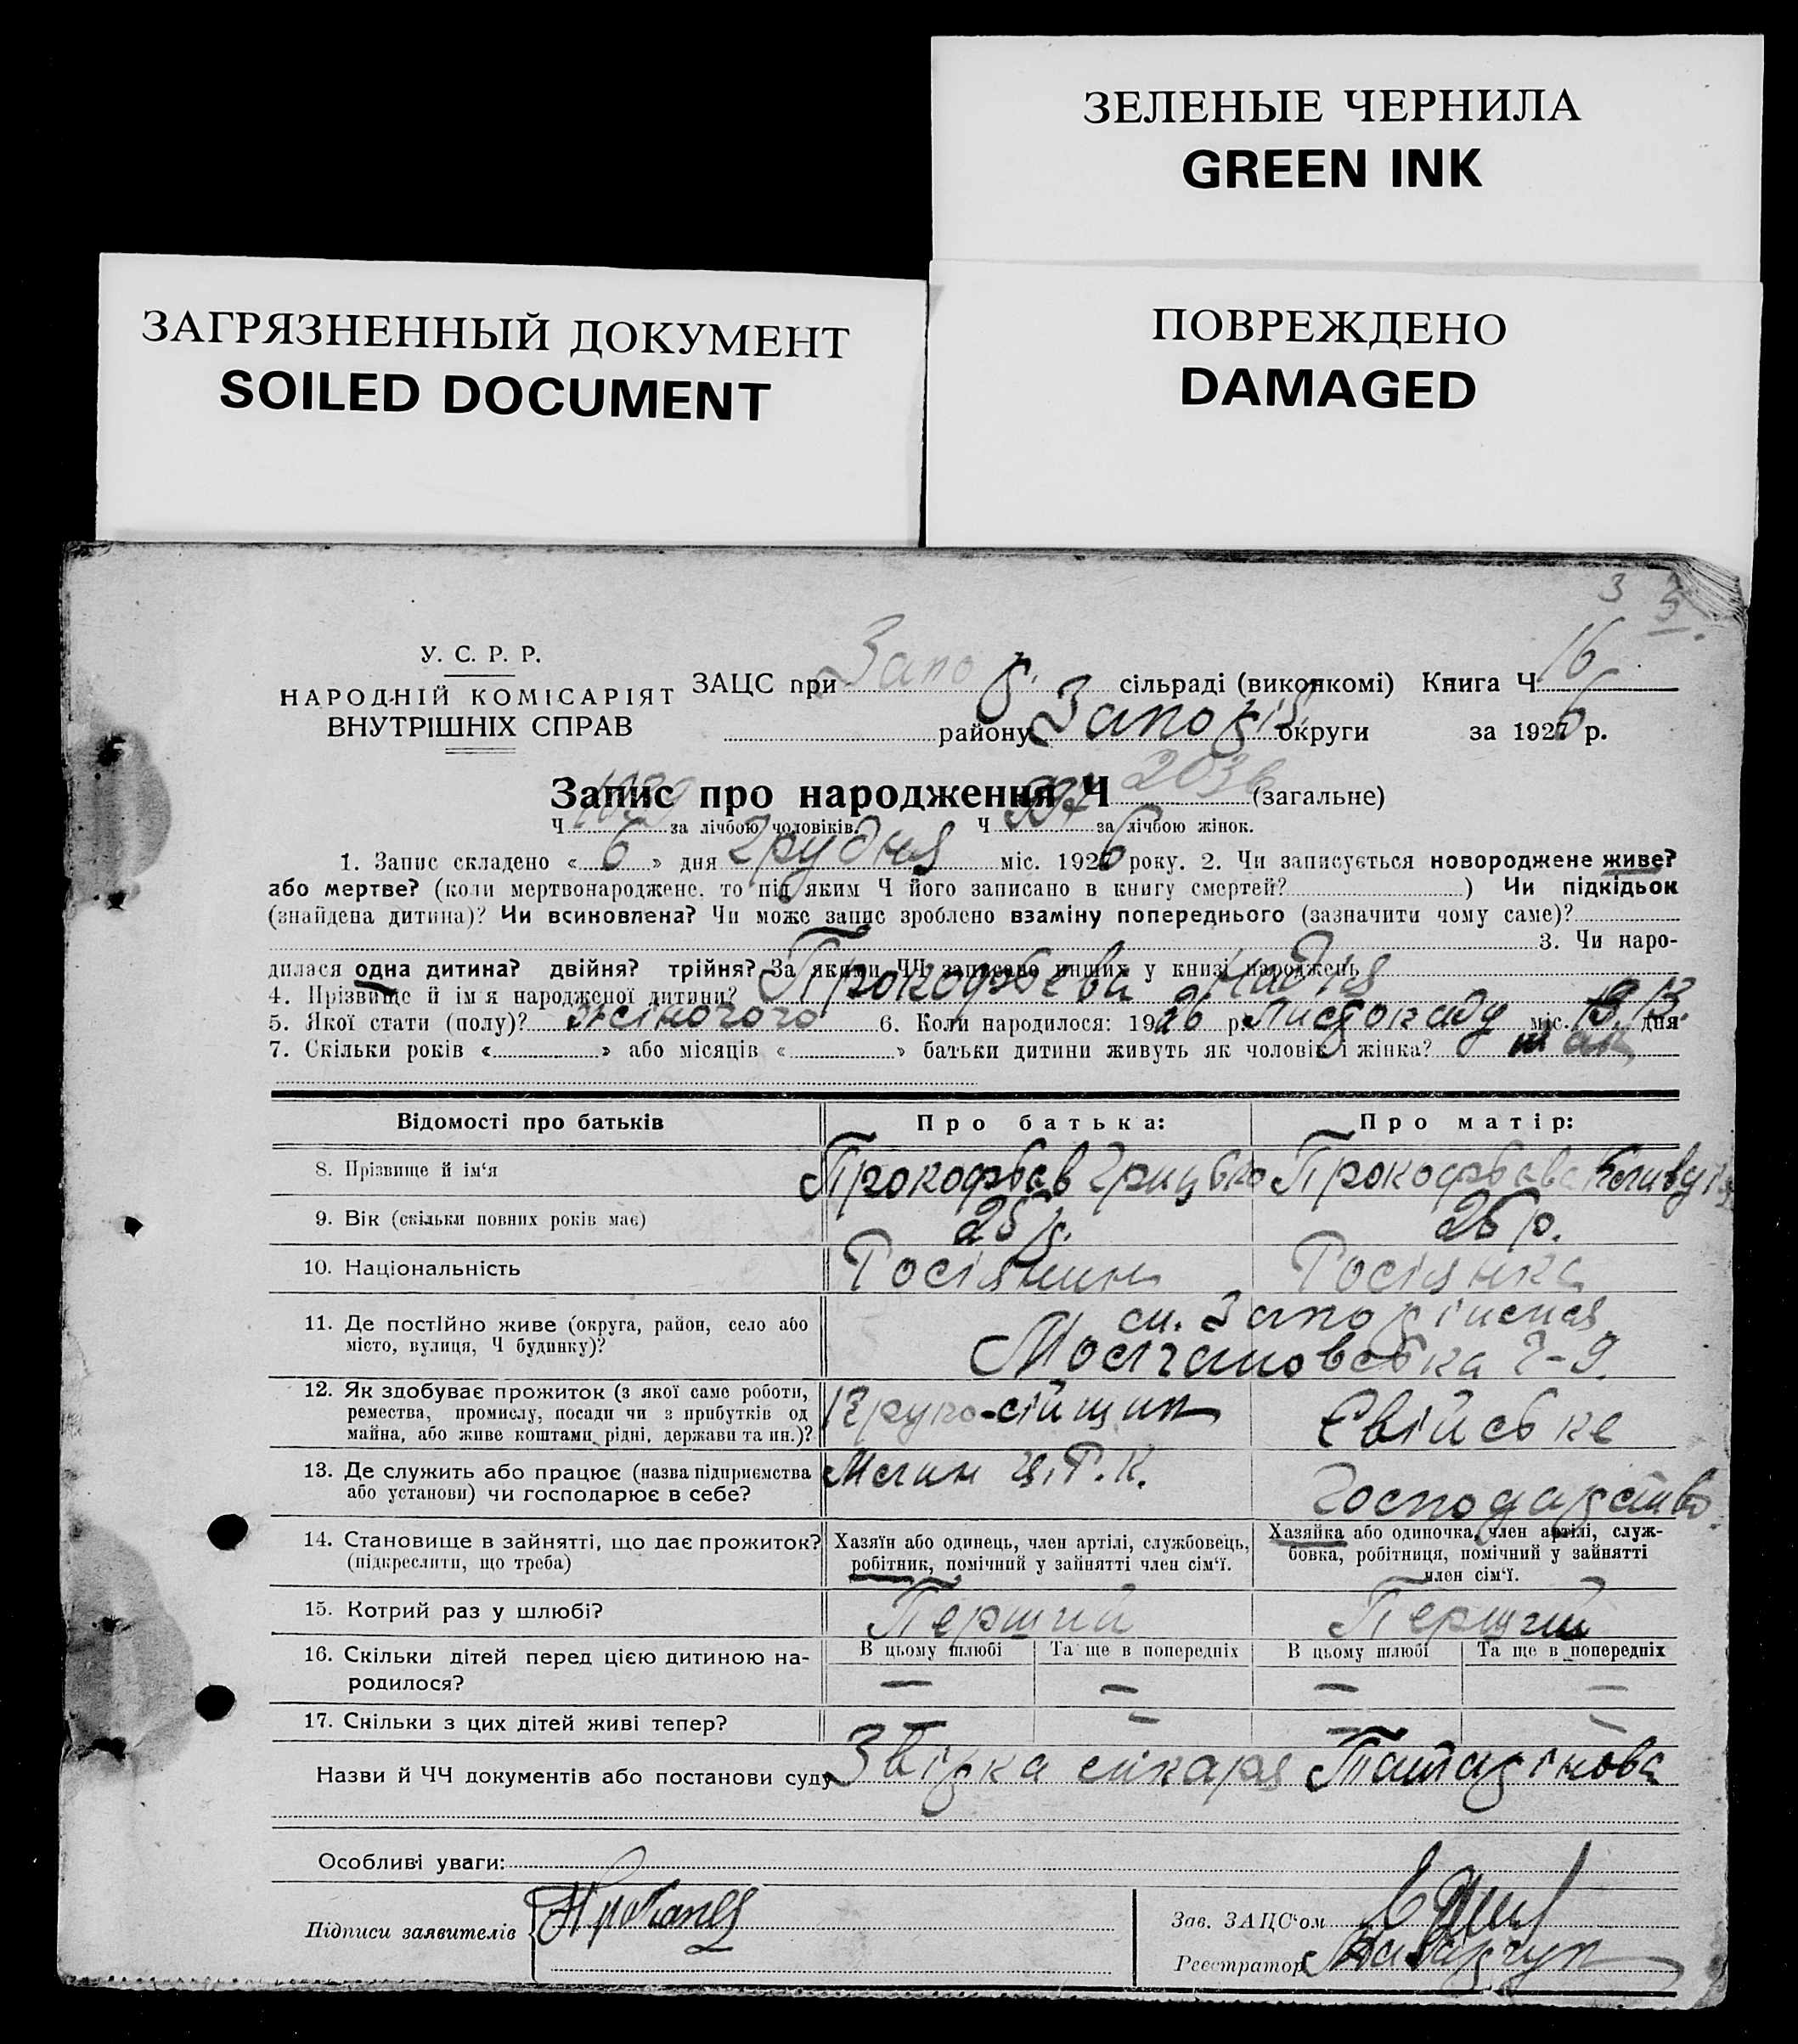 ЗЕЛЕНЫЕ ЧЕРНИЛА
GREEN INK
ЗАГРЯЗНЕННЫЙ ДОКУМЕНТ
SOILED DOCUMENT
ПОВРЕЖДЕНО
DAMAGED
3
У. С. Р. Р.
НАРОДНІЙ КОМІСАРІЯТ
ВНУТРІШНІХ СПРАВ
ЗАЦС при Запо сільраді (виконкомі) Книга Ч 16
району Запоріз округи за 1926 р.
Запис про народження Ч 2036 (загальне)
Ч 1039 за лічбою чоловіків. Ч 997 за лічбою жінок.
1. Запис складено « 6 » дня Грудня міс. 1926 року. 2. Чи записується новороджене живе?
або мертве? (коли мертвонароджене, то під яким Ч його записано в книгу смертей? ) Чи підкідьок
(знайдена дитина)? Чи всиновлена? Чи може запис зроблено взаміну попереднього (зазначити чому саме)?
3. Чи наро-
дилася одна дитина? двійня? трійня? За якими ЧЧ записано инших у книзі народжень
4. Прізвище й ім'я народженої дитини? Прокофьева Надія
5. Якої стати (полу)? жіночого 6. Коли народилося: 1926 р. Листопаду міс. 13. дня
7. Скільки років « » або місяців « » батьки дитини живуть як чоловік і жінка? так
Відомості про батьків Про батька: Про матір:
8. Прізвище й ім'я Прокофьев Грицько Прокофьева
9. Вік (скільки повних років має) 25 р. 26 р.
10. Національність Росіянин Росіянка
11. Де постійно живе (округа, район, село або
місто, вулиця, Ч будинку)? м. Запоріжжя
Ч-9.
12. Як здобуває прожиток (з якої саме роботи,
ремества, промислу, посади чи з прибутків од
майна, або живе коштами рідні, держави та ин.)?
13. Де служить або працює (назва підприємства
або установи) чи господарює в себе? Млин Ц.Р.К. Господарство
14. Становище в зайнятті, що дає прожиток?
(підкреслити, що треба)
Хазяїн або одинець, член артілі, службовець,
робітник, помічний у зайнятті член сім'ї.
Хазяйка або одиночка, член артілі, служ-
бовка, робітниця, помічний у зайнятті
член сім'ї.
15. Котрий раз у шлюбі? Перший Перший
16. Скільки дітей перед цією дитиною на-
родилося?
В цьому шлюбі Та ще в попередніх В цьому шлюбі Та ще в попередніх
— — — —
17. Скільки з цих дітей живі тепер? — — — —
Назви й ЧЧ документів або постанови суду Звізка лікаря
Особливі уваги:
Підписи заявителів
Зав. ЗАЦС'ом
Реєстратор